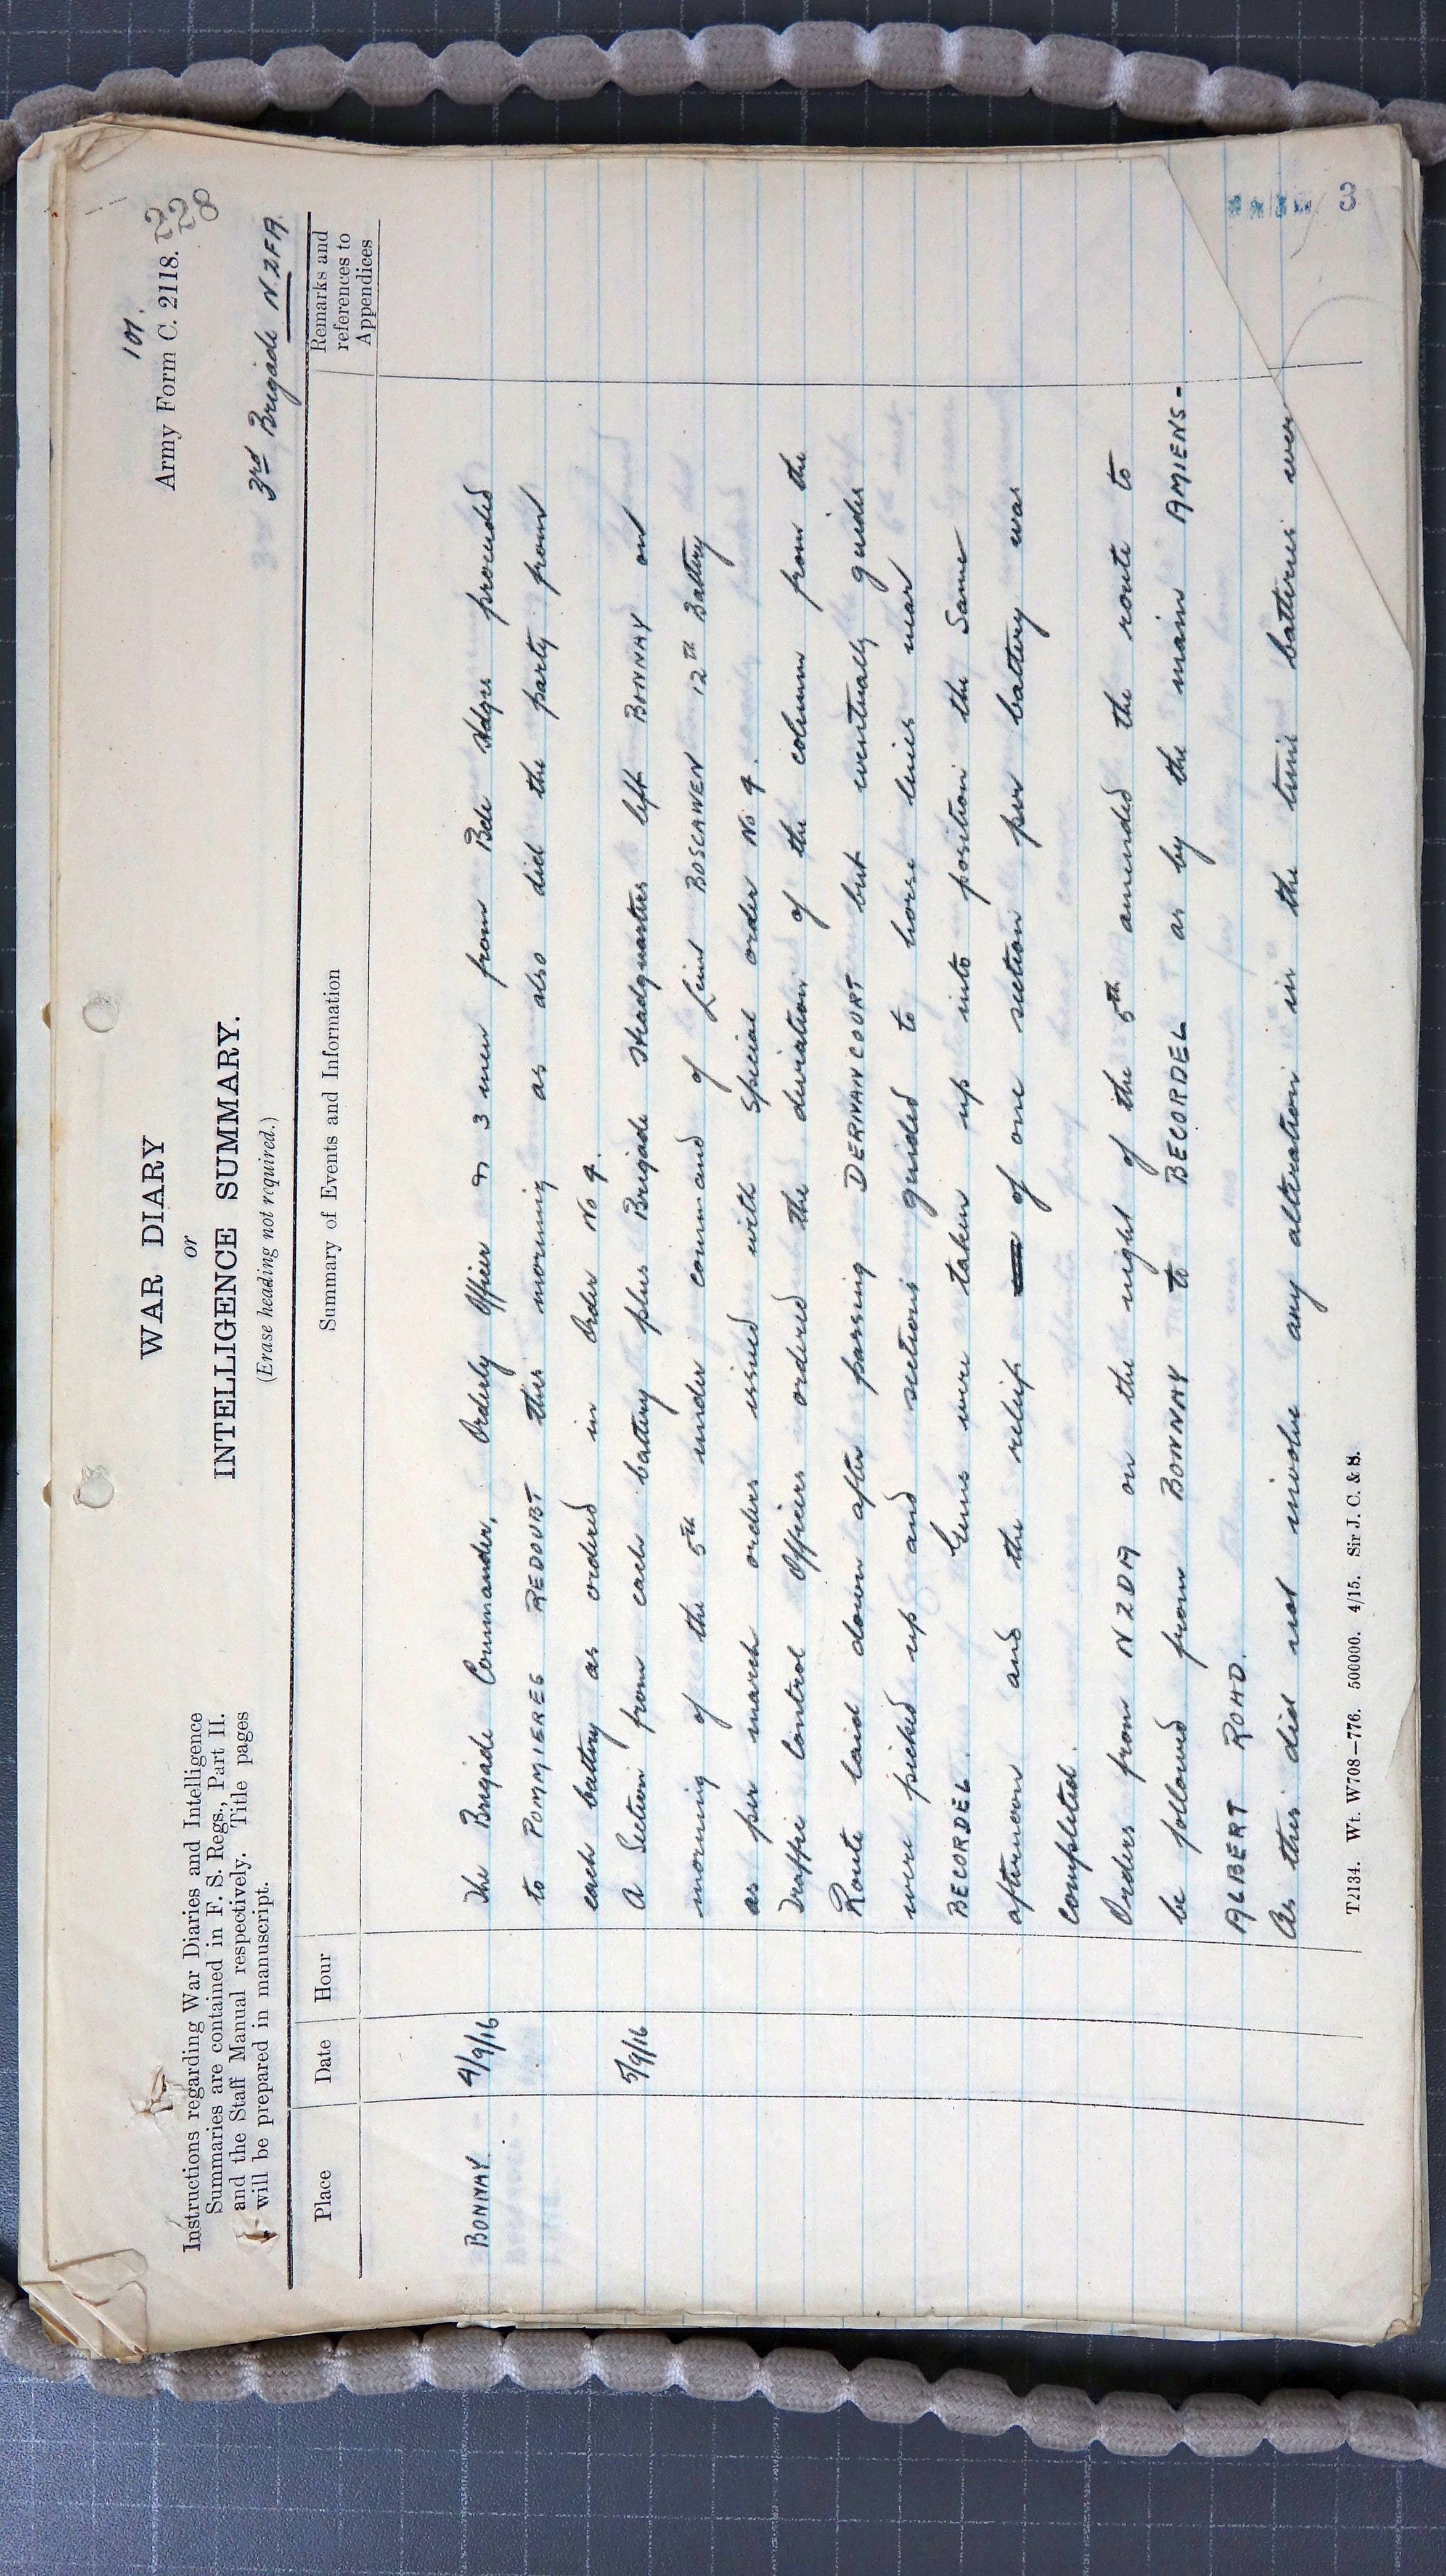 107.
Army Form C. 2118.
228
WAR DIARY
or
INTELLIGENCE SUMMARY.
(Erase heading not required.)
3rd Brigade N.Z.F.A.
Instructions regarding War Diaries and Intelligence
Summaries are contained in F. S. Regs., Part II.
and the Staff Manual respectively. Title pages
will be prepared in manuscript.
Place Date Hour Summary of Events and Information Remarks and references to Appendices
BONNAY. 4/9/16 The Brigade Commander, Orderly Officer & 3 men from Bde Hdqrs proceeded
to POMMIERES REDOUBT this morning as also did the party from
each battery as ordered in Order No 9.
5/9/16 A Section from each battery plus Brigade Headquarters left BONNAY on
morning of the 5th under command of Lieut BOSCAWEN 12TH Battery
as per march orders issued with special order No 9.
Traffic Control Officers ordered the deviation of the column from the
Route laid down after passing DERNANCOURT but eventually guides
were picked up and sections guided to horse lines near
BECORDEL. Guns were taken up into position the same
afternoon and the relief of one section per battery was
completed.
Orders from NZDA on the night of the 5th amended the route to
be followed from BONNAY to BECORDEL as by the main AMIENS-
ALBERT ROAD.
As this did not involve any alteration in the time batteries were
T2134. Wt. W708—776. 500000. 4/15. Sir J. C. & S.
3